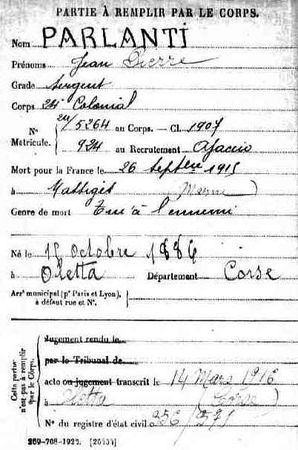 PARTIE À REMPLIR PAR LE CORPS.
Nom PARLANTI
Prénoms Jean Pierre
Grade Sergent
Corps 24e Colonial
N° 5264 au Corps. — Cl. 1907
Matricule. 924 au Recrutement Ajaccio
Mort pour la France le 26 Septbre 1915
à Massiges (Marne)
Genre de mort Tué à l'ennemi
Né le 15 octobre 1886
à Oletta Département Corse
Arrt municipal (pr Paris et Lyon),
à défaut rue et N°.
Cette partie n'est pas à remplir par le Corps.
Jugement rendu le
par le Tribunal de
acte ou jugement transcrit le 14 Mars 1916
à Oletta (Corse)
N° du registre d'état civil